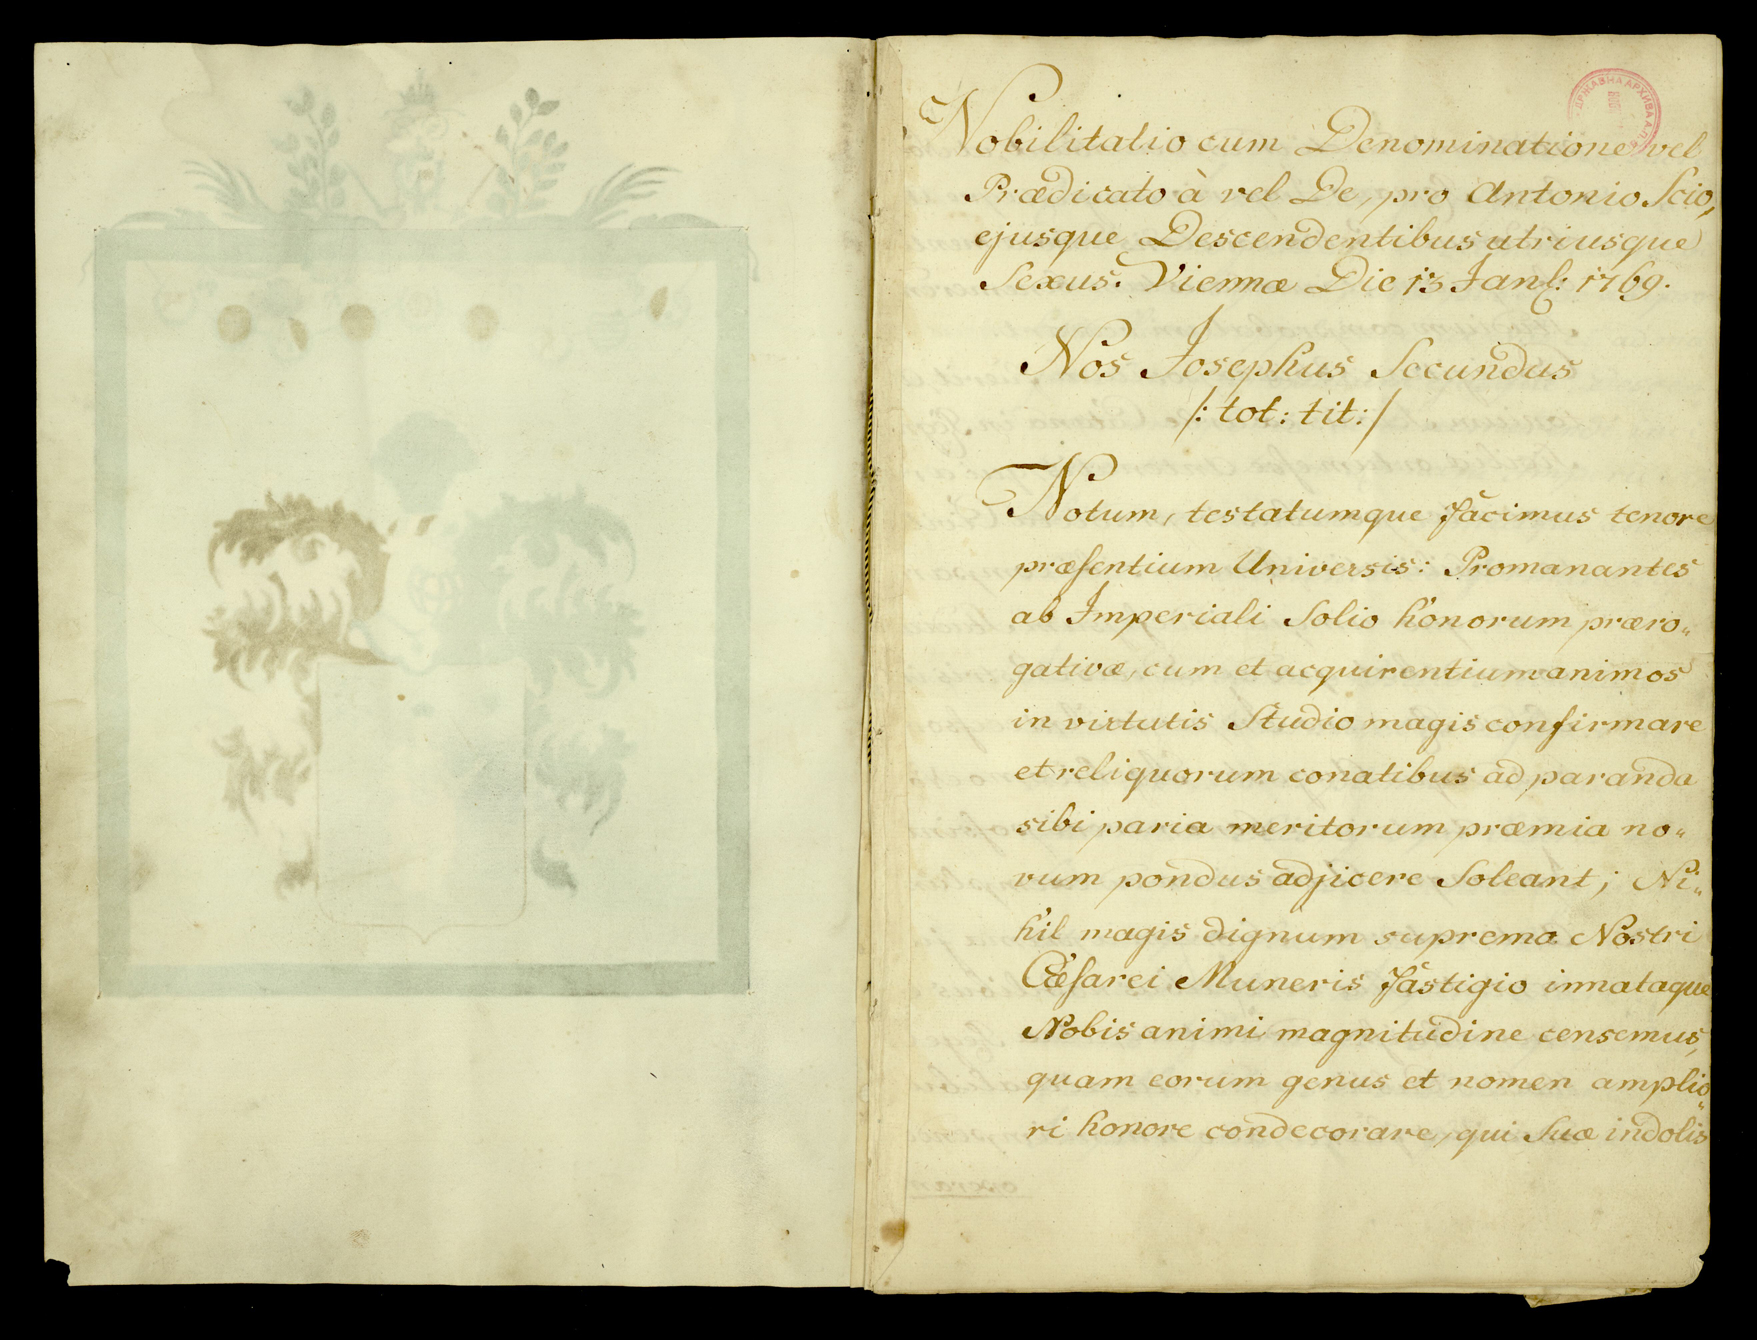 ДРЖАВНА АРХИВА
Nobilitatio cum Denominatione vel
Prædicato à vel De, pro Antonio Scio,
ejusque Descendentibus utriusque
Sexus. Viennæ Die 13 Jan: 1769.
Nos Josephus Secundus
/: tot: tit: /
Notum, testatumque facimus tenore
præsentium Universis: Promanantes
ab Imperiali Solio honorum præro„
gativæ, cum et acquirentium animos
in virtutis Studio magis confirmare
et reliquorum conatibus ad paranda
sibi paria meritorum præmia no„
vum pondus adjicere Soleant; Ni„
hil magis dignum supremo Nostri
Cæsarei Muneris fastigio innataque
Nobis animi magnitudine censemus,
quam eorum genus et nomen amplio„
ri honore condecorare, qui Suæ indolis